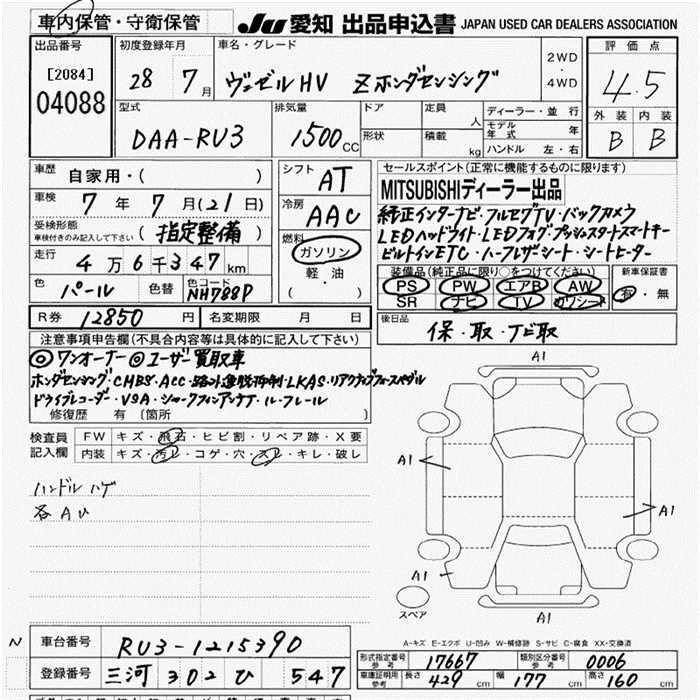 車内保管・守衛保管
JU 愛知 出品申込書 JAPAN USED CAR DEALERS ASSOCIATION
出品番号
[2084]
04088
初度登録年月
28 7月
車名・グレード
ヴェゼルHV Zホンダセンシング
2WD
・
4WD
評価点
4.5
外装 内装
B B
型式
DAA-RU3
排気量
1500cc
ドア
形状
定員 人
積載 kg
ディーラー・並行
モデル年式 年
ハンドル 左・右
車歴
自家用・( )
車検
7年7月(21日)
受検形態
車検付きのみ記入して下さい
(指定整備)
走行
4万6千347km
色
パール
色替
色コード
NH788P
シフト
AT
冷房
AAC
燃料
ガソリン
軽・油
( )
セールスポイント(正常に機能するものに限ります)
MITSUBISHIディーラー出品
純正インターナビ・フルセグTV・バックカメラ
LEDヘッドライト・LEDフォグ・プッシュスタートスマートキー
ビルトインETC・ハーフレザーシート・シートヒーター
装備品(純正品に限り○をつけてください)
PS PW エアB AW
SR ナビ TV カワシート
新車保証書
有・無
R券 12850円
名変期限 月 日
後日品
保・取・ナビ取
注意事項申告欄(不具合内容等は具体的に記入して下さい)
◎ワンオーナー◎ユーザー買取車
ホンダセンシング・CMBS・ACC・路外逸脱抑制・LKAS・リアクティブフォースペダル
ドライブレコーダー・VSA・シャークフィンアンテナ・ルーフレール
修復歴 有(箇所 )
検査員記入欄
FW キズ・飛石・ヒビ割・リペア跡・X要
内装 キズ・汚レ・コゲ・穴・スレ・キレ・破レ
ハンドルハゲ
各AU
A1
A1
A1
A1
A1
スペア
A-キズ E-エクボ U-凹み W-補修跡 S-サビ C-腐食 XX-交換済
N
車台番号
RU3-1215390
登録番号
三河 302 ひ 547
形式指定番号 参考
17667
類別区分番号 参考
0006
車庫証明用 参考
長さ 429cm 幅 177cm 高さ 160cm